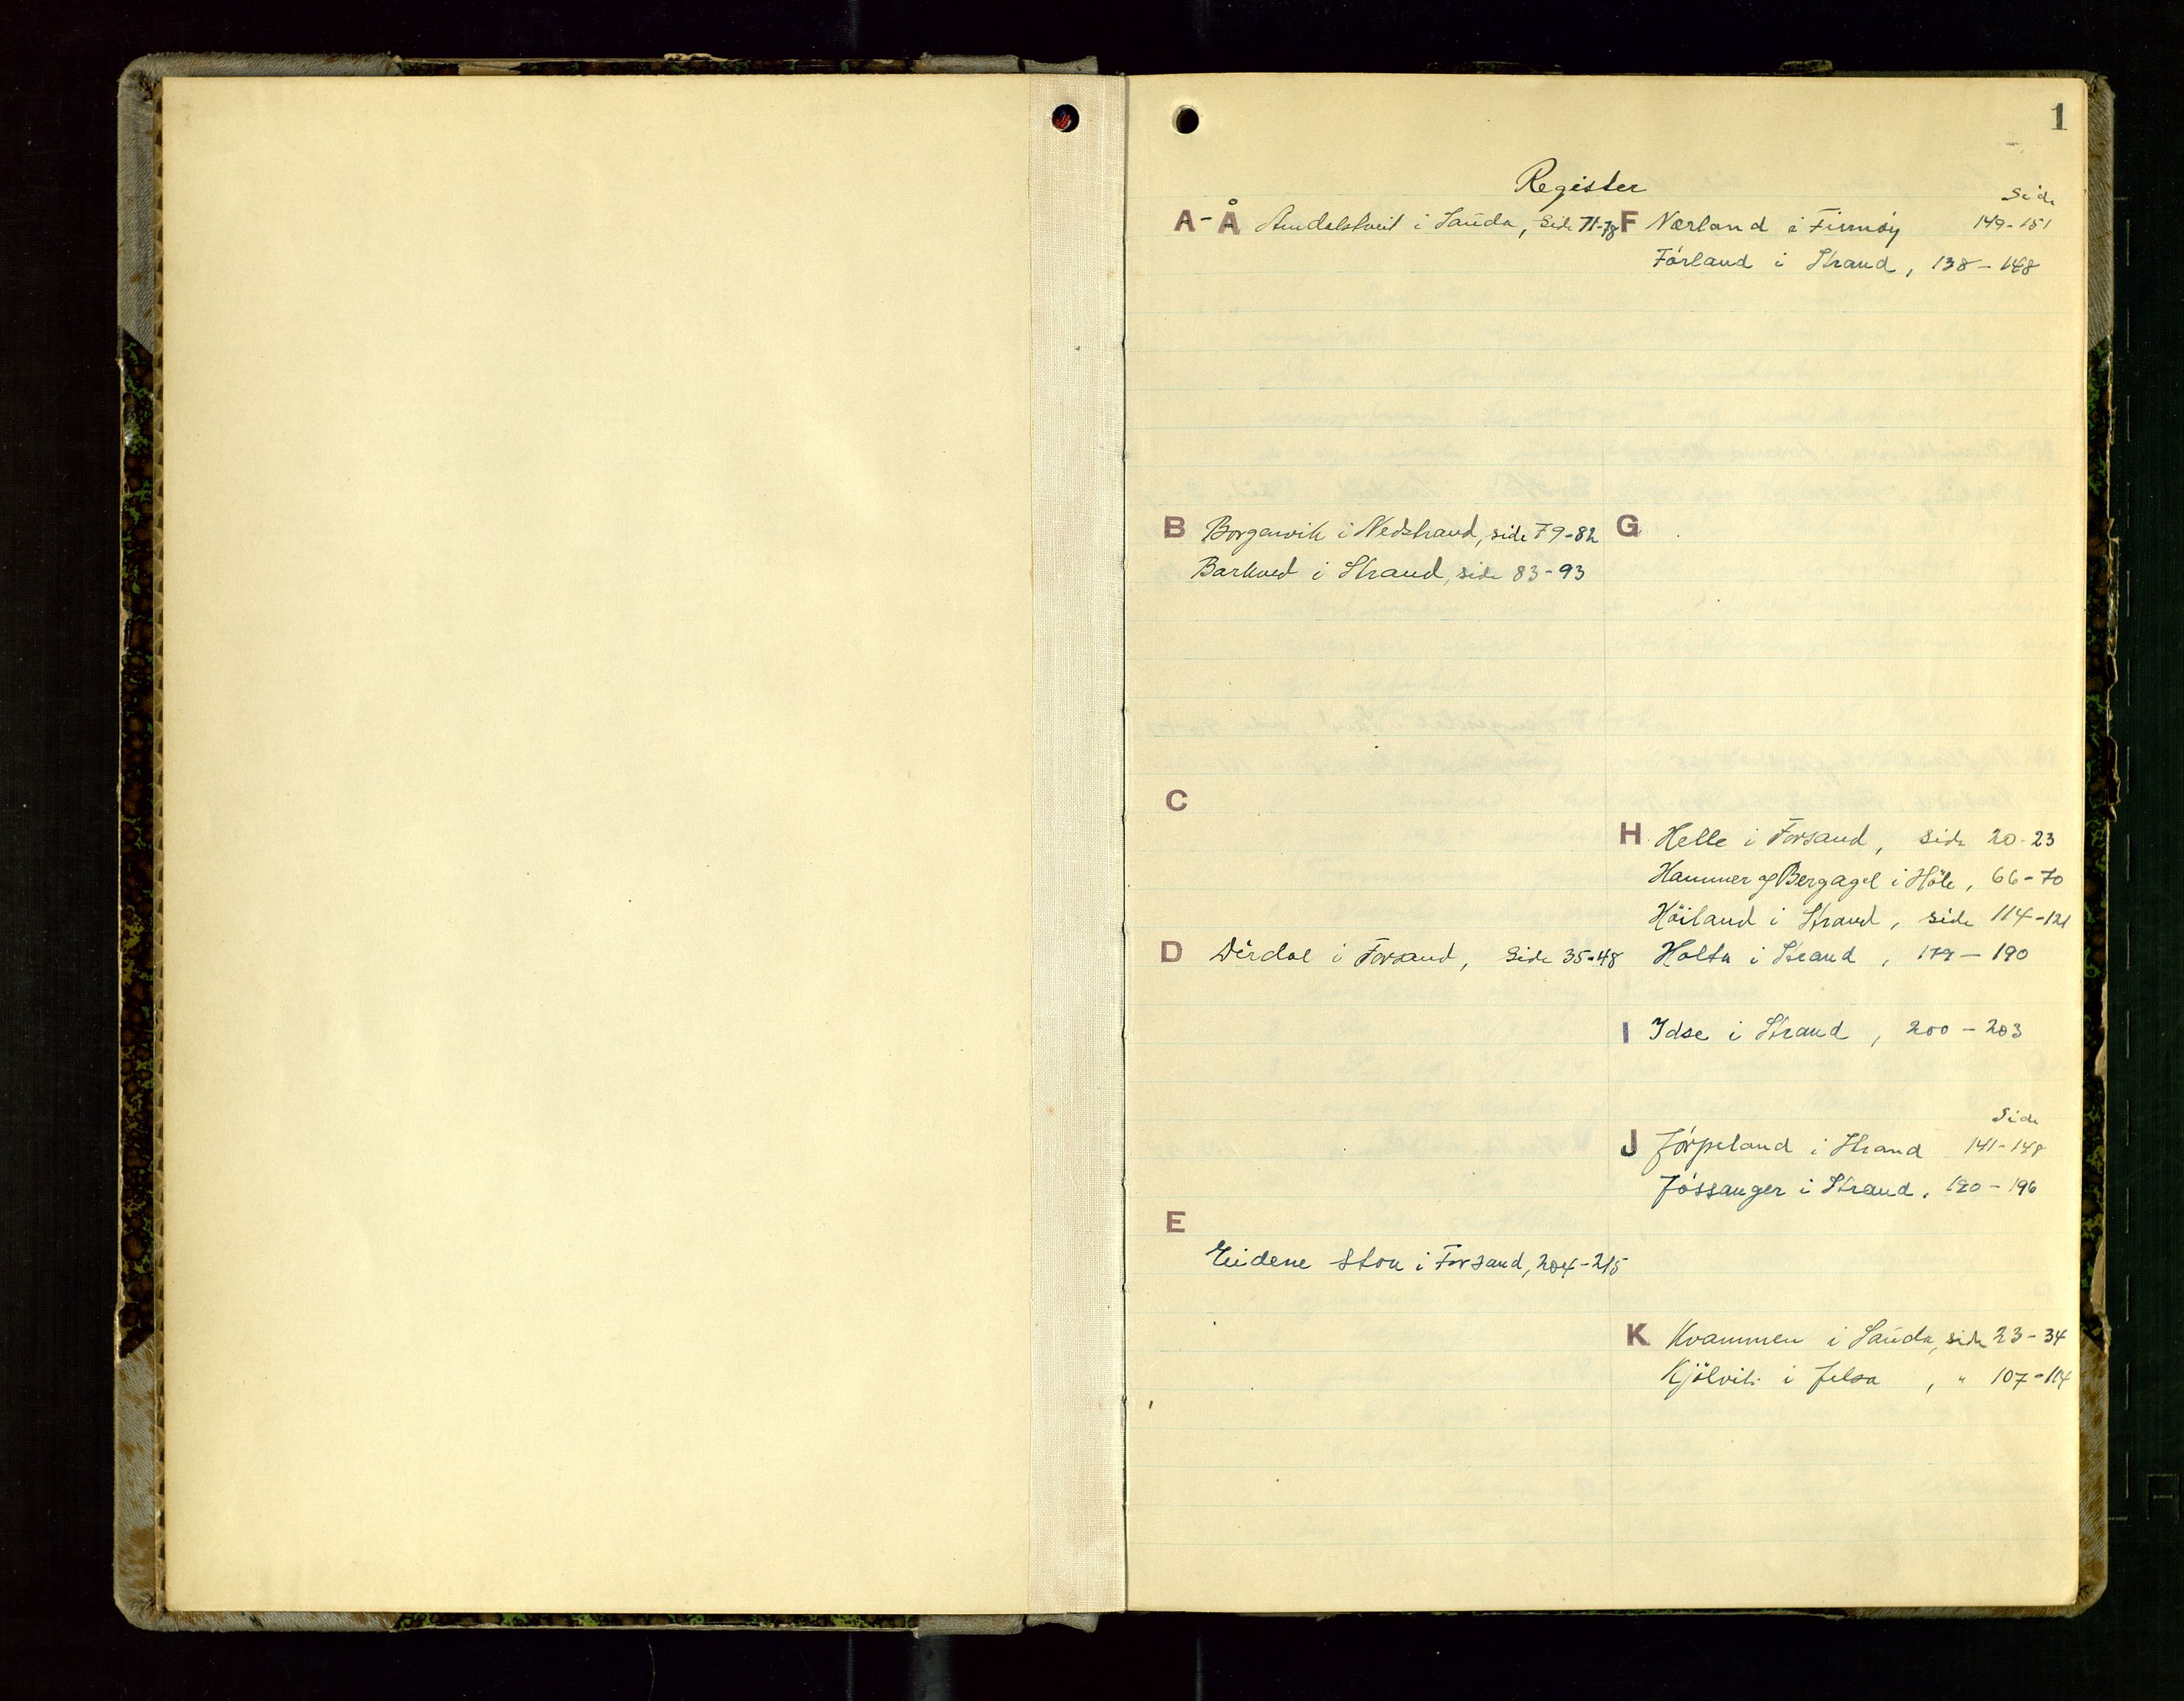 1
Register
A-Å Amdalstveit i Sauda, Side 71-78
B Borgenvik i Nedstrand, side 79-82
Barkved i Strand, side 83-93
C
D Dirdal i Forsand, Side 35-48
E
Eidene store i Forsand, 204-215
Side
F Nærland i Finnøy 149-151
Førland i Strand, 138-148
G
H Helle i Forsand, side 20-23
Hammer og Bergagel i Høle, 66-70
Höiland i Strand, side 114-121
Holta i Strand, 179-190
I Idse i Strand, 200-203
Side
J Jørpeland i Strand 141-148
Jøssanger i Strand, 190-196
K Kvammen i Sauda, side 23-34
Kjölvik i Jelsa, " 107-114